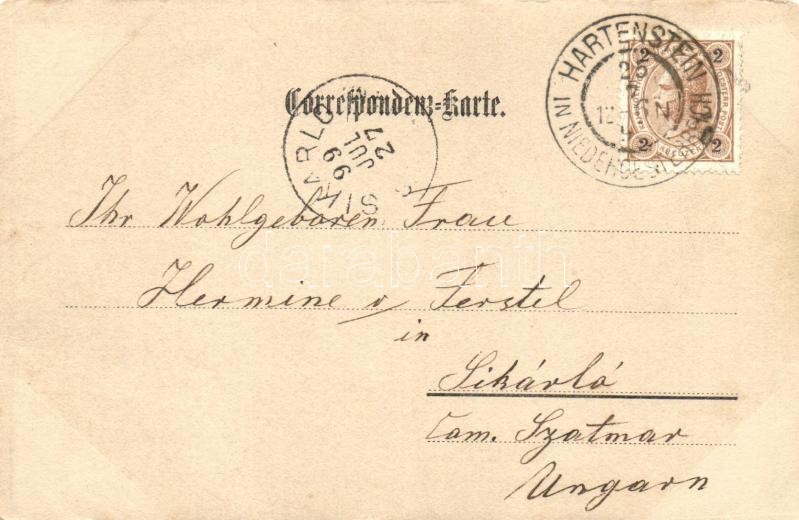 Correspondenz-Karte.
HARTENSTEIN
IN NIEDERÖST
25
12
2 2
2 2
SIKARLO
99 JUL 27
darabanth
Ihr Wohlgeboren Frau
Hermine v Ferstel
in
Sikárló
Com. Szatmar
Ungarn